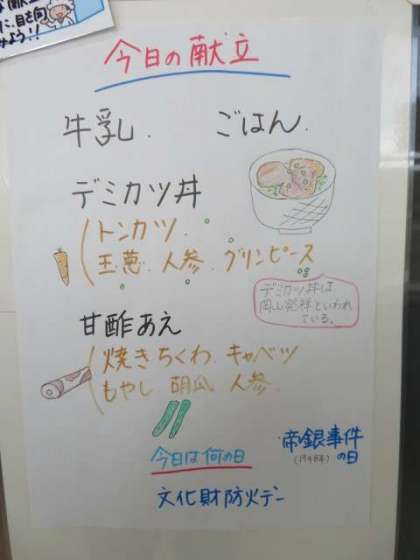 に、目を向
みよう!!
今日の献立
牛乳. ごはん.
デミカツ丼
トンカツ.
玉葱. 人参. グリンピース
デミカツ丼は
岡山発祥といわれ
ている。
甘酢あえ
焼きちくわ. キャベツ
もやし. 胡瓜. 人参.
今日は何の日
帝銀事件
(1948年) の日
文化財防火デー